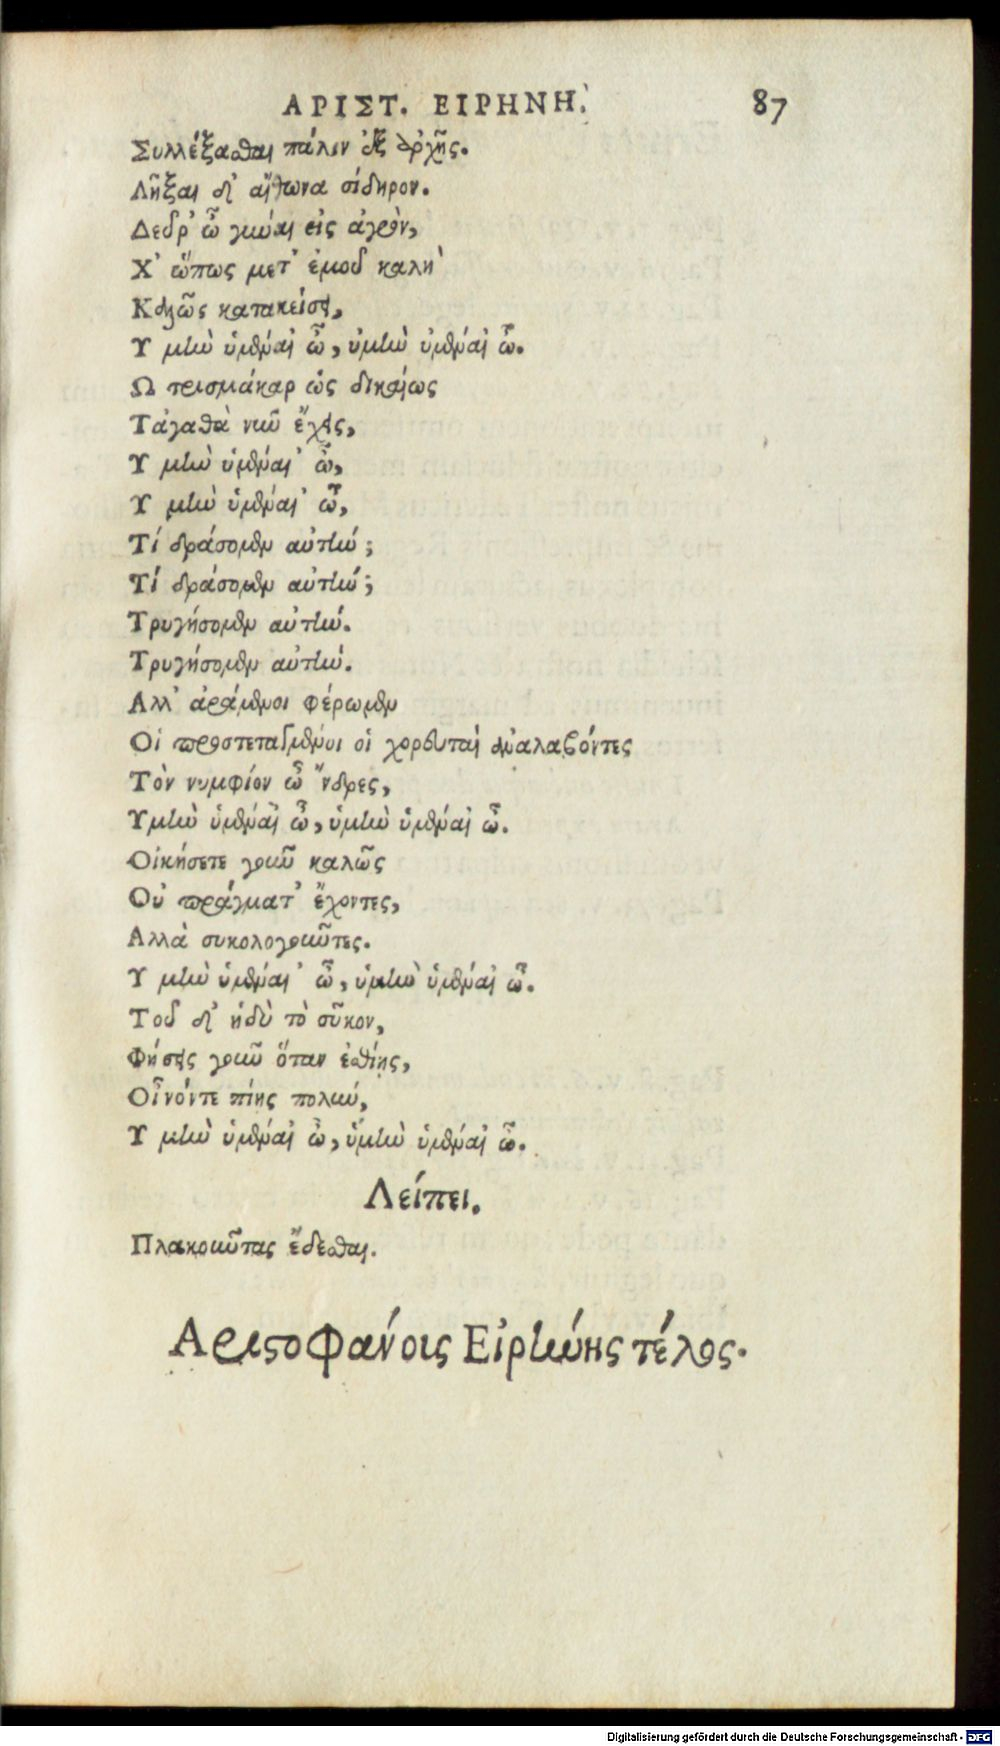 ΑΡΙΣΤ. ΕΙΡΗΝΗ. 87
Συλλέξασθαι πάλιν ἐξ ἀρχῆς.
Λῆξαι δ' αἴθωνα σίδηρον.
Δεῦρ' ὦ γύναι εἰς ἀγρὸν,
Χ' ὥπως μετ' ἐμοῦ καλὴ
Καλῶς κατακείσῃ,
Υ μὴν ὑμέναι' ὦ, ὑμὴν ὑμέναι' ὦ.
Ω τρισμάκαρ ὡς δικαίως
Τἀγαθὰ νῦν ἔχεις,
Υ μὴν ὑμέναι' ὦ,
Υ μὴν ὑμέναι' ὦ,
Τί δράσομεν αὐτήν;
Τί δράσομεν αὐτήν;
Τρυγήσομεν αὐτήν.
Τρυγήσομεν αὐτήν.
Αλλ' ἀράμενοι φέρωμεν
Οἱ προστεταγμένοι οἱ χορευταὶ ἀναλαβόντες
Τὸν νυμφίον ὦ ἄνδρες,
Υμὴν ὑμέναι' ὦ, ὑμὴν ὑμέναι' ὦ.
Οἰκήσετε γοῦν καλῶς
Οὐ πράγματ' ἔχοντες,
Αλλὰ συκολογοῦντες.
Υ μὴν ὑμέναι' ὦ, ὑμὴν ὑμέναι' ὦ.
Τοῦ δ' ἡδὺ τὸ σῦκον,
Φήσεις γοῦν ὅταν ἐσθίῃς,
Οἶνόντε πίῃς πολύν,
Υ μὴν ὑμέναι' ὦ, ὑμὴν ὑμέναι' ὦ.
Λείπει.
Πλακοῦντας ἔδεσθαι.
Αριστοφάνοις Εἰρήνης τέλος.
Digitalisierung gefördert durch die Deutsche Forschungsgemeinschaft - DFG